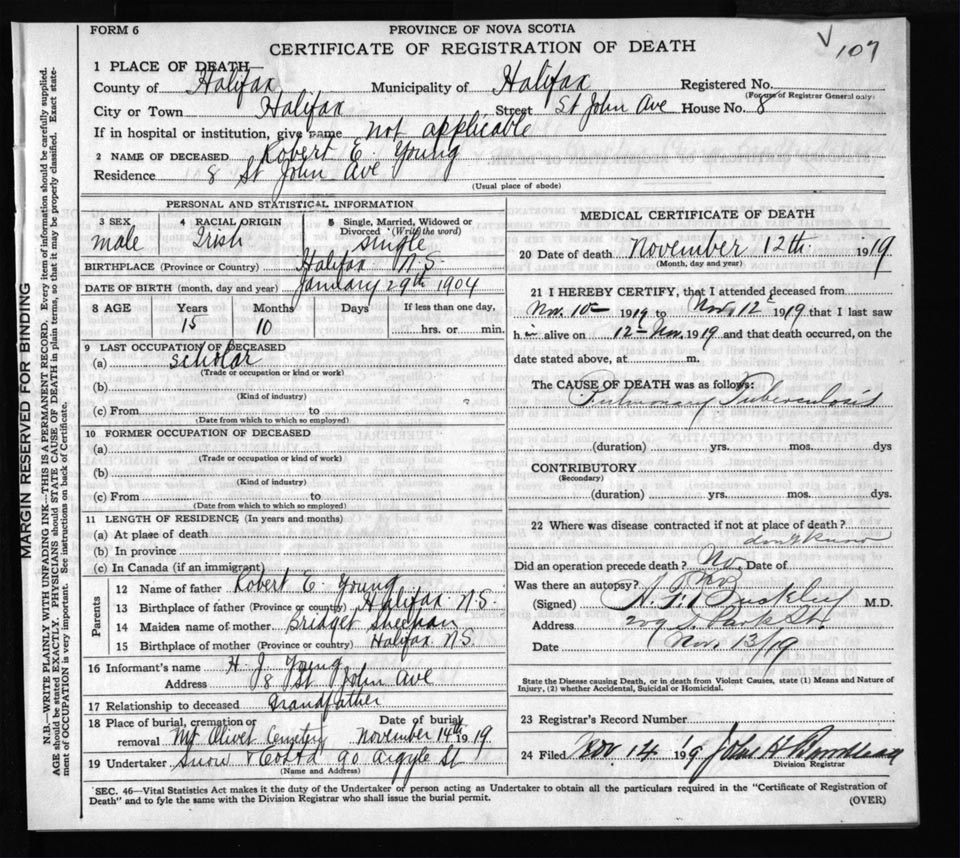 FORM 6
PROVINCE OF NOVA SCOTIA
CERTIFICATE OF REGISTRATION OF DEATH
107
1 PLACE OF DEATH
County of Halifax Municipality of Halifax Registered No.
(For use of Registrar General only)
City or Town Halifax Street St John Ave House No. 8
If in hospital or institution, give name not applicable
2 NAME OF DECEASED Robert E. Young
Residence 8 St John Ave
(Usual place of abode)
PERSONAL AND STATISTICAL INFORMATION
3 SEX 4 RACIAL ORIGIN 5 Single, Married, Widowed or Divorced (Write the word)
male Irish single
BIRTHPLACE (Province or Country) Halifax N.S.
DATE OF BIRTH (month, day and year) January 29th 1904
8 AGE Years Months Days If less than one day,
15 10 hrs. or min.
9 LAST OCCUPATION OF DECEASED
(a) scholar
(Trade or occupation or kind or work)
(b)
(Kind of industry)
(c) From to
(Date from which to which so employed)
10 FORMER OCCUPATION OF DECEASED
(a)
(Trade or occupation or kind of work)
(b)
(Kind of industry)
(c) From to
(Date from which to which so employed)
11 LENGTH OF RESIDENCE (In years and months)
(a) At place of death
(b) In province
(c) In Canada (if an immigrant)
Parents
12 Name of father Robert E. Young
13 Birthplace of father (Province or country) Halifax N.S.
14 Maiden name of mother Bridget Sheehan
15 Birthplace of mother (Province or country) Halifax N.S.
16 Informant's name H. J. Young
Address 8 St John Ave
17 Relationship to deceased Grandfather
18 Place of burial, cremation or removal Mt Olivet Cemetery Date of burial November 14th 1919.
19 Undertaker Snow & Co Ltd 90 Argyle St
(Name and Address)
MEDICAL CERTIFICATE OF DEATH
20 Date of death November 12th 1919
(Month, day and year)
21 I HEREBY CERTIFY, that I attended deceased from
Nov. 10 1919 to Nov. 12 1919 that I last saw
him alive on 12 Nov. 1919 and that death occurred, on the
date stated above, at m.
The CAUSE OF DEATH was as follows:
Pulmonary Tuberculosis
(duration) yrs. mos. dys
CONTRIBUTORY
(Secondary)
(duration) yrs. mos. dys.
22 Where was disease contracted if not at place of death?
don't know
Did an operation precede death? No. Date of
Was there an autopsy? No
(Signed) Buckley M.D.
Address 209 S. Park St.
Date Nov. 13/19
State the Disease causing Death, or in death from Violent Causes, state (1) Means and Nature of
Injury, (2) whether Accidental, Suicidal or Homicidal.
23 Registrar's Record Number
24 Filed Nov. 14 1919 John H
Division Registrar
SEC. 46—Vital Statistics Act makes it the duty of the Undertaker or person acting as Undertaker to obtain all the particulars required in the "Certificate of Registration of
Death" and to fyle the same with the Division Registrar who shall issue the burial permit.
(OVER)
MARGIN RESERVED FOR BINDING
N.B.—WRITE PLAINLY WITH UNFADING INK—THIS IS A PERMANENT RECORD. Every item of information should be carefully supplied.
AGE should be stated EXACTLY. PHYSICIANS should STATE CAUSE OF DEATH in plain terms, so that it may be properly classified. Exact statement
of OCCUPATION is very important. See instructions on back of Certificate.